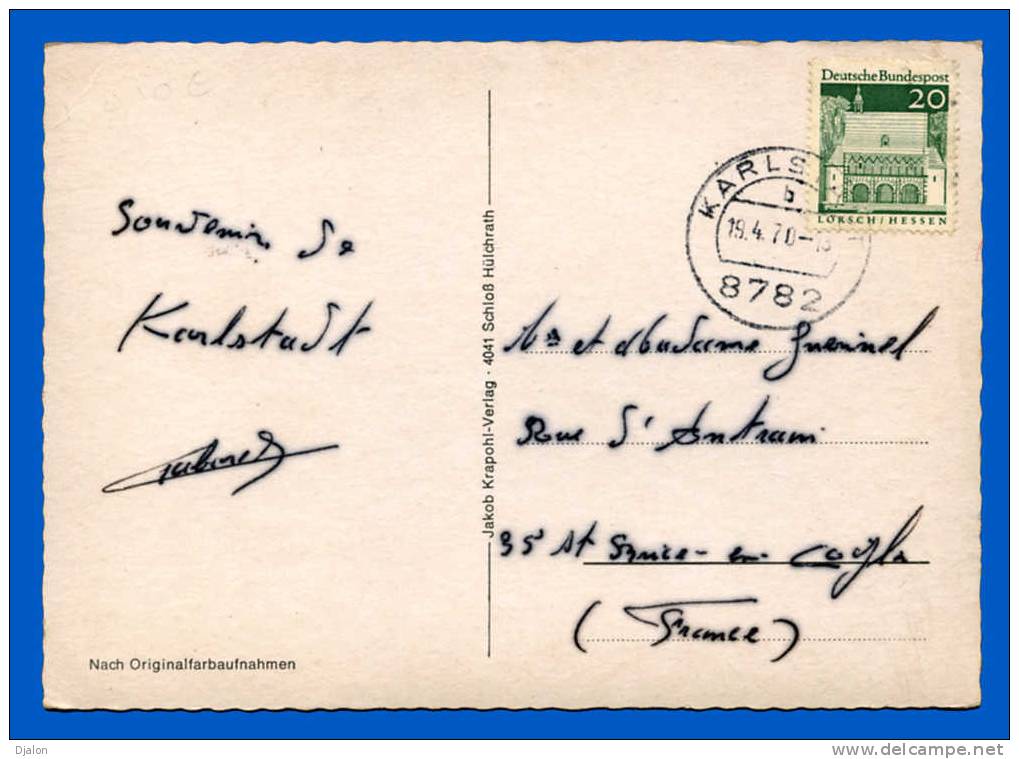 Deutsche Bundespost
20
LORSCH/HESSEN
KARLS
b
19.4.70-
8782
Souvenir de
Karlstadt
Mr et Madame
Rue d'Antrain
35 St Brice-en-Cogles
(France)
Jakob Krapohl-Verlag · 4041 Schloß Hülchrath
Nach Originalfarbaufnahmen
Djalon
delcampe.net